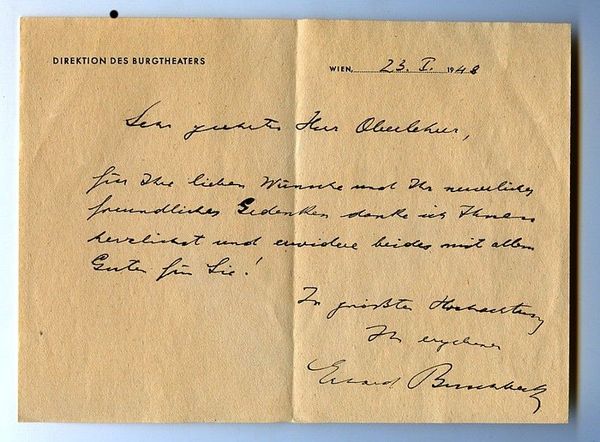 DIREKTION DES BURGTHEATERS
WIEN, 23. I. 1948
Sehr geehrter Herr Oberlehrer,
für Ihre lieben Wünsche und Ihr neuerliches
freundliches Gedenken danke ich Ihnen
herzlichst und erwidere beides mit allem
Guten für Sie!
In größter Hochachtung
Ihr ergebener
Erhard Buschbeck